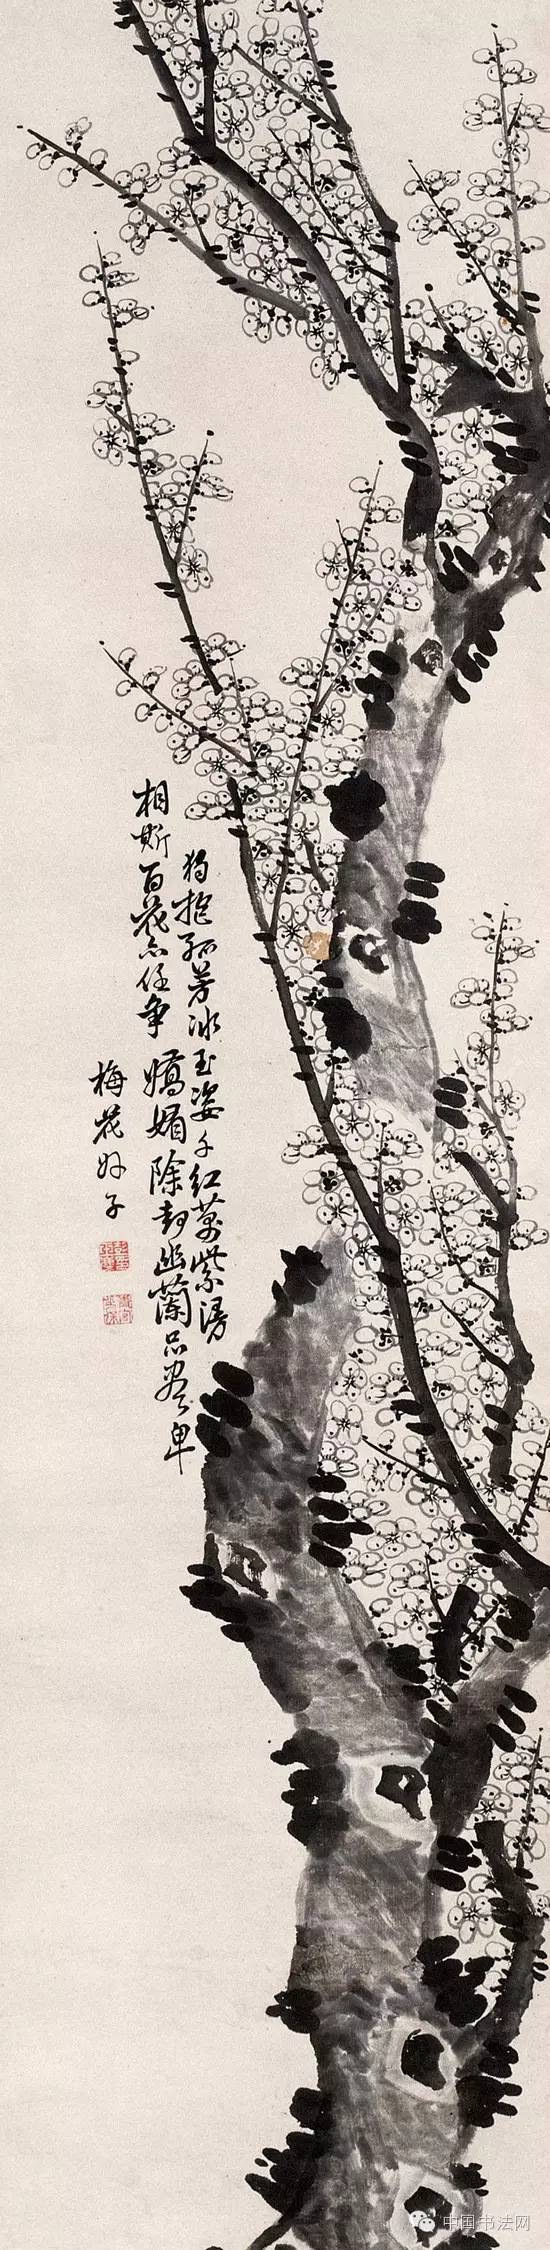 独抱孤芳冰玉姿千红万紫漫
相斯百花忘任争娇媚除却幽兰品尽卑
梅花好子
中国书法网